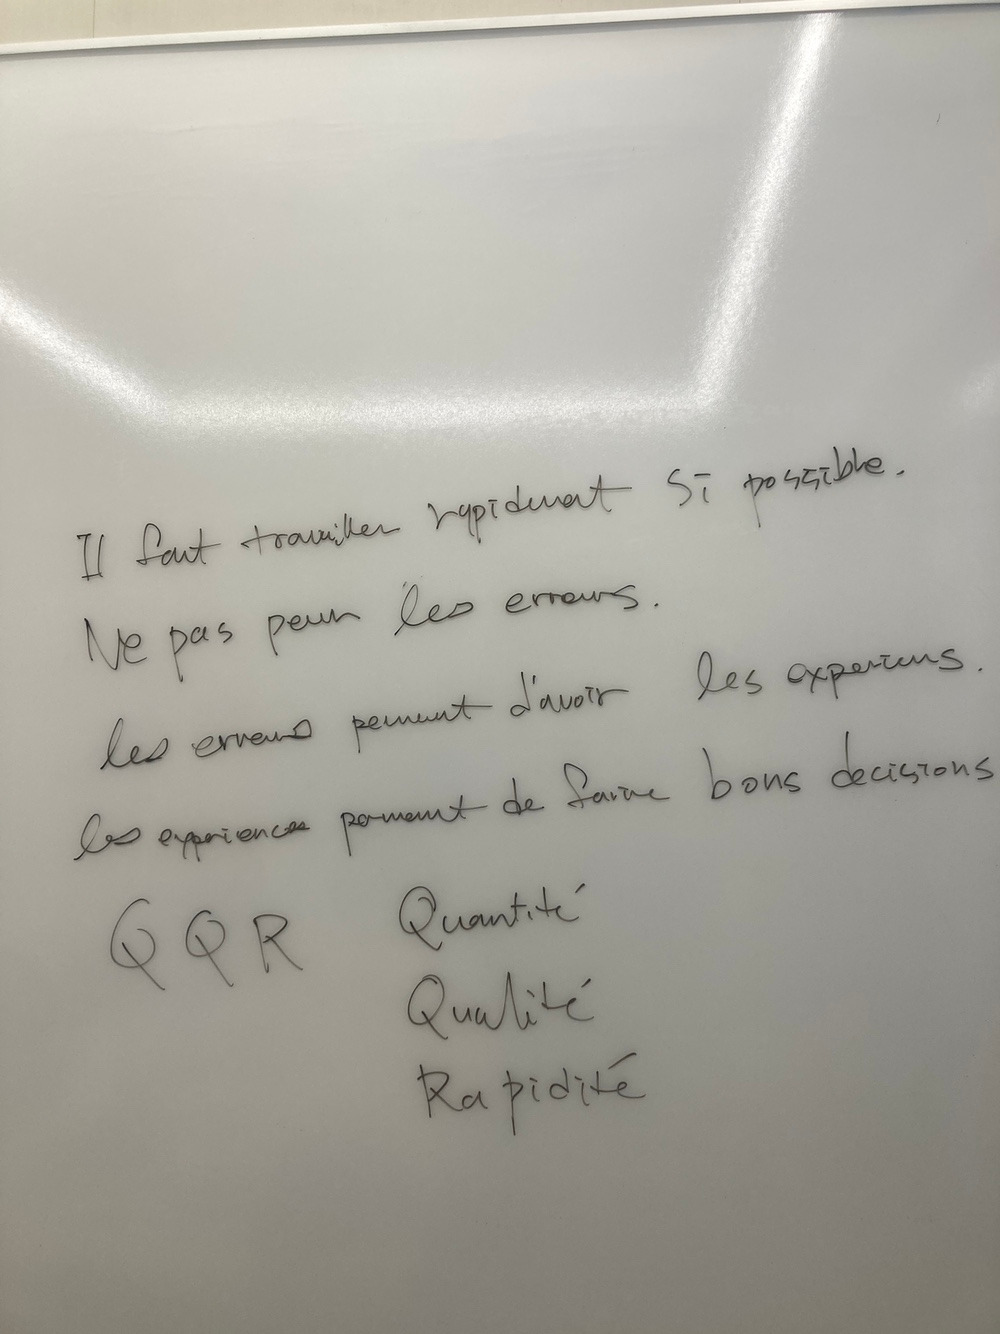 Il faut travailler rapidement si possible.
Ne pas peur les erreurs.
les erreurs perment d'avoir les experiens.
les experiences perment de faire bons decisions
QQR Quantité
Qualité
Rapidité